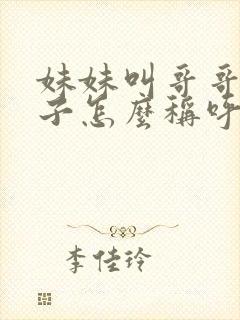 妹妹叫哥哥
子怎麼稱呼
李佳玲